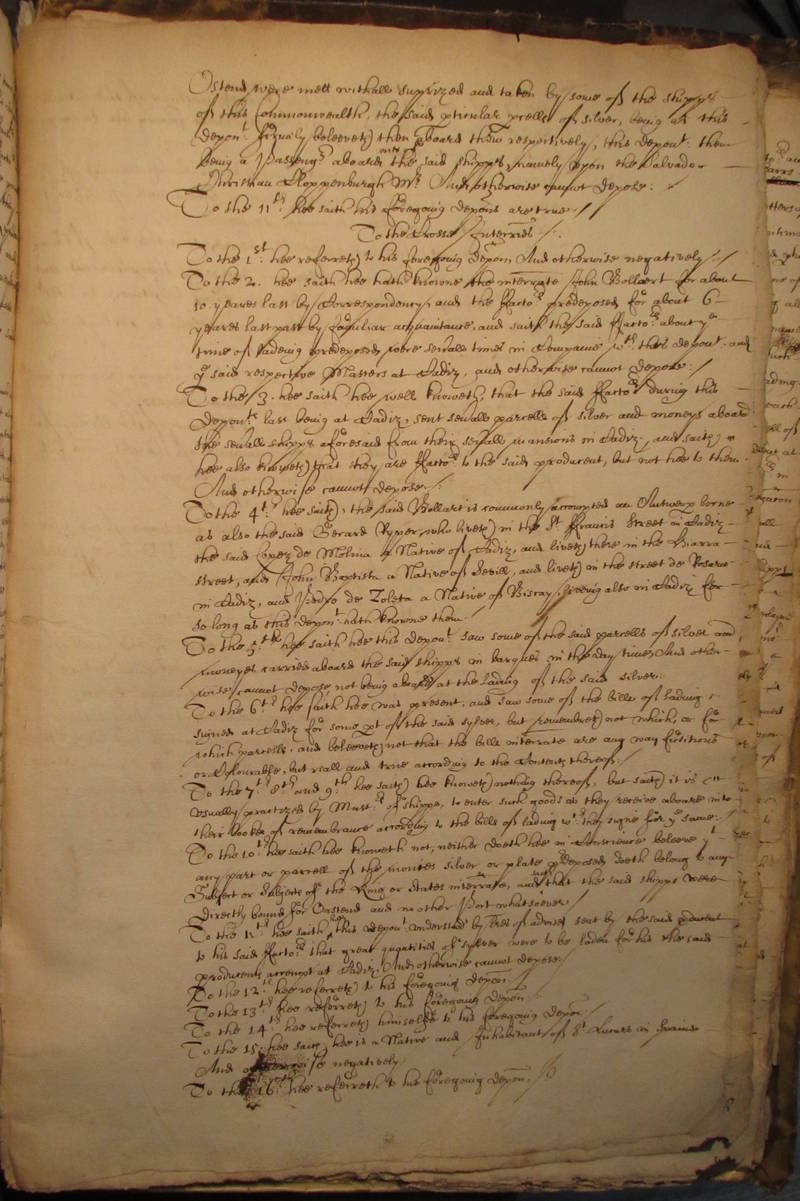 Ostend, were mett withall surprized and taken by some of the shipps
of this Commonwealth, the said pticular pcells of silver, being as this
depont. verily beleeveth then aboard them respectively, this depont. then
being a passengr aboard one of the said shipps namely upon the Salvador
Christian Cloppenburgh Mr. And otherwise cannot depose:
To the 11th hee saith his foregoing deposns are true
To the Crosse Interries.
To the 1st. hee referreth to his foregoing deposn And otherwise negatively
To the 2. hee saith hee hath knowne the interrate John Bollaert for about
10 yeares last by Correspondency, and the ffactors predeposed for about 6
yeares last past by familiar acquaintance, and saith the said ffactors about ye
time of ladeing predeposed were severall times in Companie with this depont. and
ye said respective Masters at Cadiz, and otherwise cannot depose:
To the 3. hee saith hee well knoweth that the said ffactors during this
deponts last being at Cadiz, sent severall parcells of silver and moneys aboard
the severall shipps aforesaid from their severall mansions in Cadiz, and saith
hee also knoweth that they are ffactors to the said producent, but not hee to them
And otherwise cannot depose.
To the 4th. hee saith, the said Bollart is commonly accompted an Antwerp borne
as also the said Gerard Kyper, who liveth in the St ffrancis Street in Cadiz
the said Lopez de Molina a Native of Cadiz, and liveth there in the
street, and John Baptista a Native of Sevill, and liveth in the street de Rosario
in Cadiz, and Pedro de Zoleta a Native of Biscay liveing also in Cadiz for
so long as this depont. hath knowne them
To the 5.th hee saith hee this depont. saw some of the said parcells of silver and
moneyes carried aboard the said shipps in barques in the day time, And other-
wise cannot depose, not being aboard at the lading of the said silver.
To the 6th. hee saith hee was present, and saw some of the bills of lading
signed at Cadiz for some pt of the said sylver, but remembreth not which, or for
which parcells, and beleeveth not that the bills interrate are any way fictitious
or Colourable, but reall and true according to the Contents thereof.
To the 7th 8th and 9th hee saith hee knoweth nothing thereof, but saith it is
usually practized by Masters of shipps, to enter such goods as they receive aboard into
their bookes of remembrance according to the bills of lading wch. they signe for ye same.
To the 10th. hee saith hee knoweth not, neither doeth hee in Conscience beleeve yt
any part or parcell of the monies silver or plate predeposed doeth belong to any
Subject or subjects of the King or States interrate, and saith that the said shipps were
directly bound for Oastend and no other Port whatsoever.
To the 11th. hee saith this depont. understood by lres of advise sent by the said producent
to his said ffactors that great quantities of sylver were to be laden for his the said
producents accompt at Cadiz. And otherwise cannot depose.
To the 12th hee referreth to his foregoing deposn.
To the 13th hee referreth to his foregoing deposn
To the 14th hee referreth himselfe to his foregoing deposn
To the 15. hee saith hee is a Native and Inhabitant of St Lucas in Spaine
And otherwise negatively
To the 16. hee referreth to his foregoing deposn.